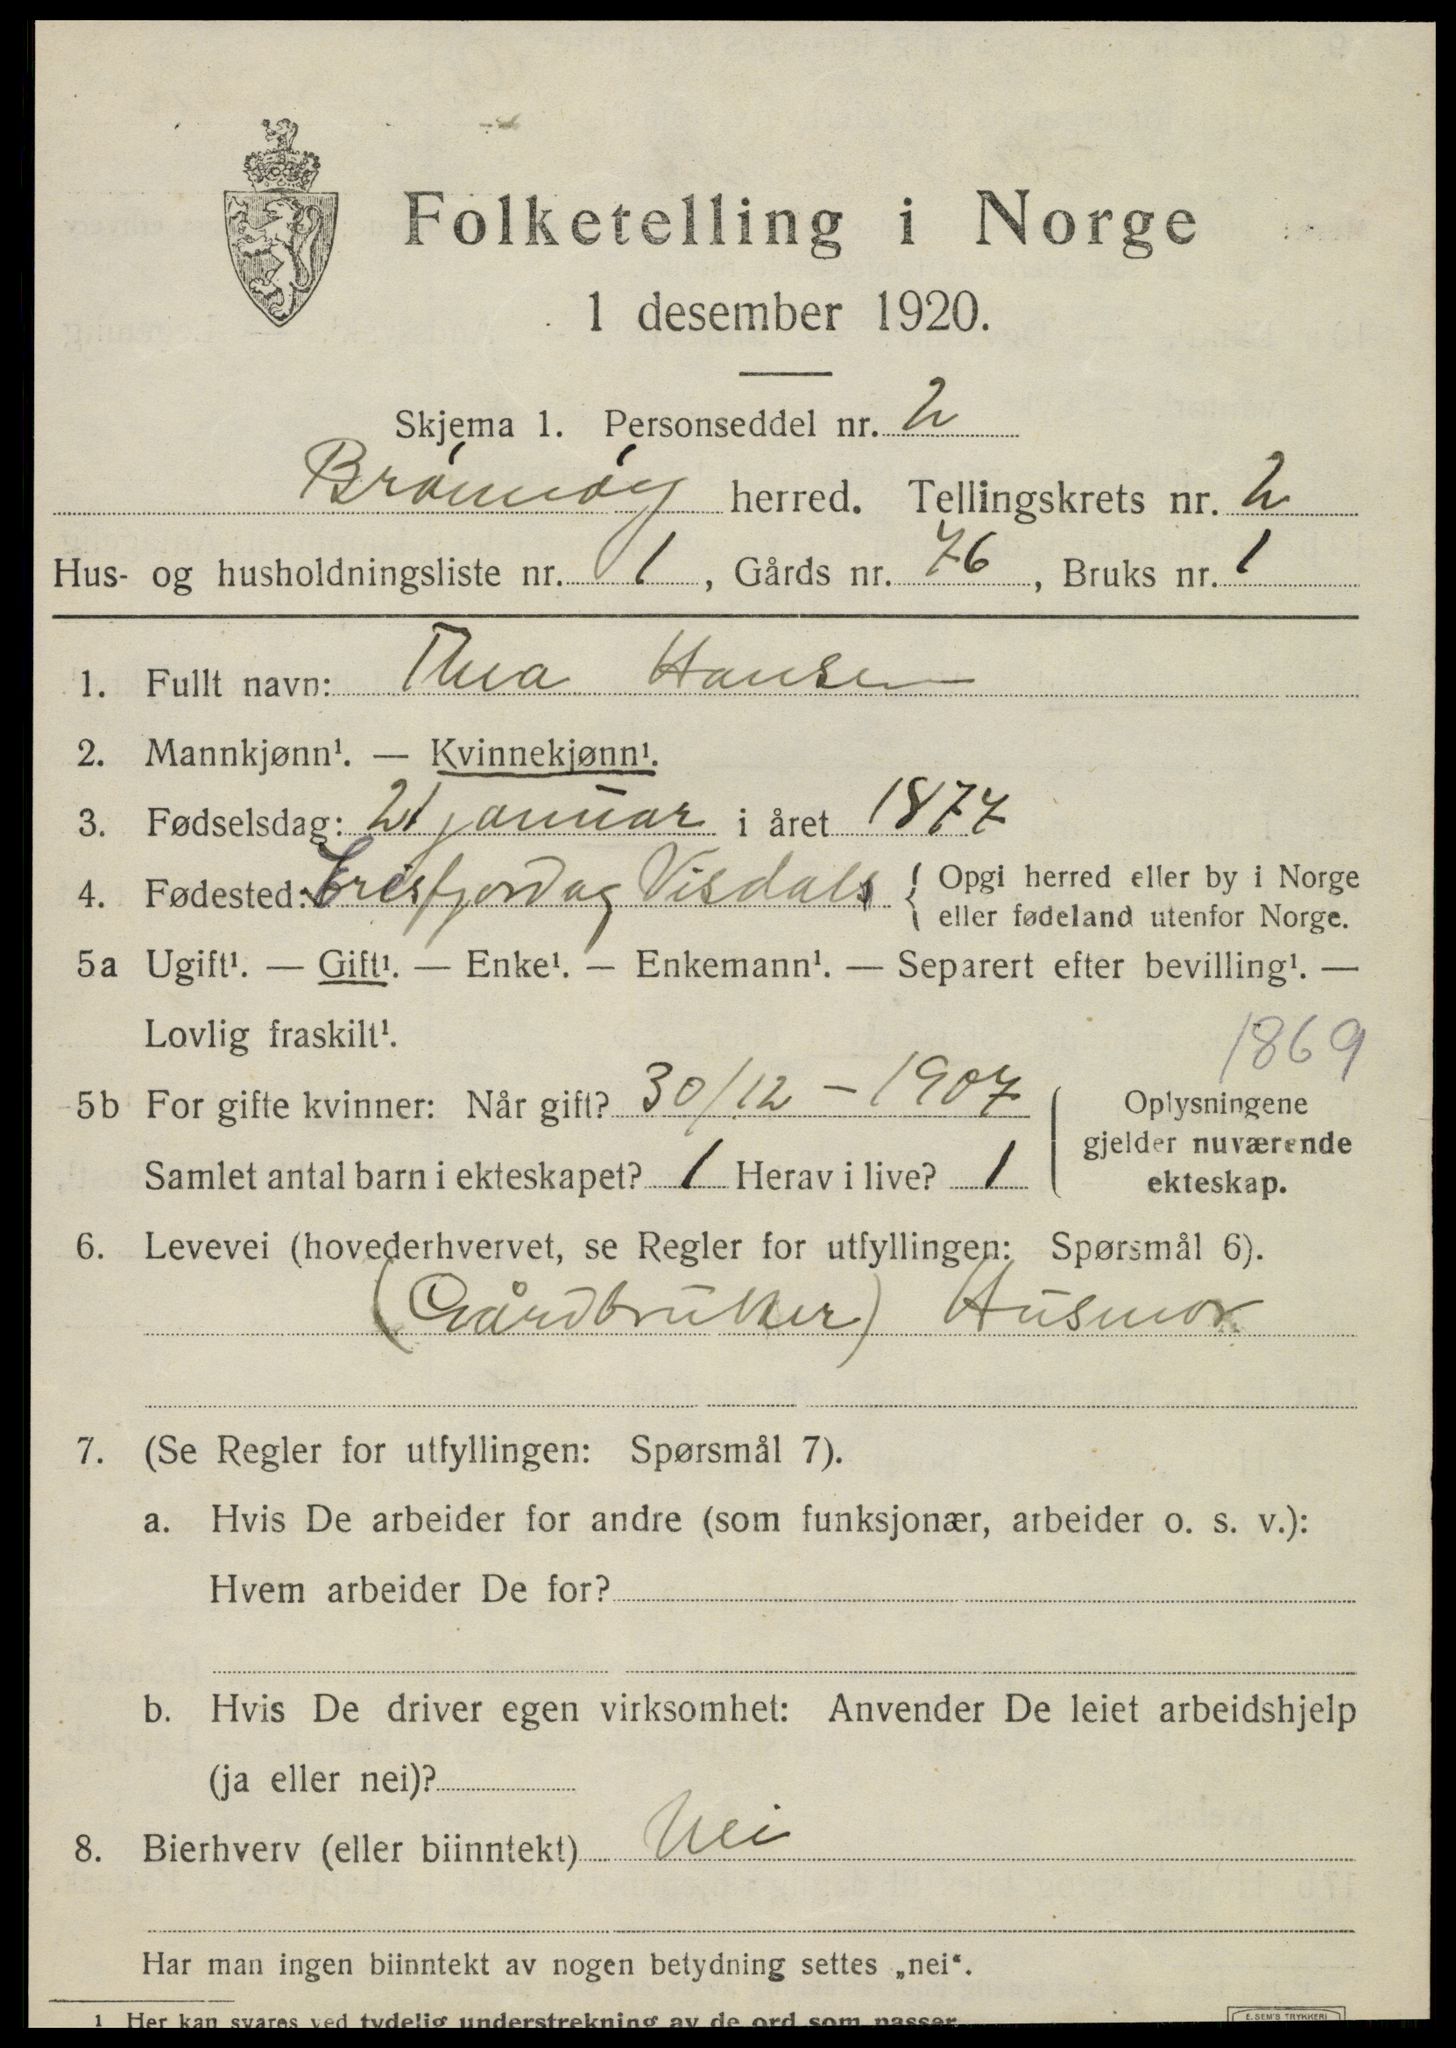 Folketelling i Norge
1 desember 1920.
Skjema 1. Personseddel nr. 2
Brónnóy herred. Tellingskrets nr. 2
Hus- og husholdningsliste nr. 1, Gårds nr. 76, Bruks nr. 1
1. Fullt navn: Thea Hansen
2. Mannkjønn¹. — Kvinnekjønn¹.
3. Fødselsdag: 21 januar i året 1877
4. Fødested: Erisfjord og Visdals { Opgi herred eller by i Norge
eller fødeland utenfor Norge.
5a Ugift¹. — Gift¹. — Enke¹. — Enkemann¹. — Separert efter bevilling¹. —
Lovlig fraskilt¹.
1869
5b For gifte kvinner: Når gift? 30/12 - 1907 Oplysningene
gjelder nuværende
Samlet antal barn i ekteskapet? 1 Herav i live? 1 ekteskap.
6. Levevei (hovederhvervet, se Regler for utfyllingen: Spørsmål 6).
(Gårdbruker) Husmor
7. (Se Regler for utfyllingen: Spørsmål 7).
a. Hvis De arbeider for andre (som funksjonær, arbeider o. s. v.):
Hvem arbeider De for?
b. Hvis De driver egen virksomhet: Anvender De leiet arbeidshjelp
(ja eller nei)?
8. Bierhverv (eller biinntekt) Nei
Har man ingen biinntekt av nogen betydning settes „nei“.
1 Her kan svares ved tydelig understrekning av de ord som passer.
E. SEM'S TRYKKERI